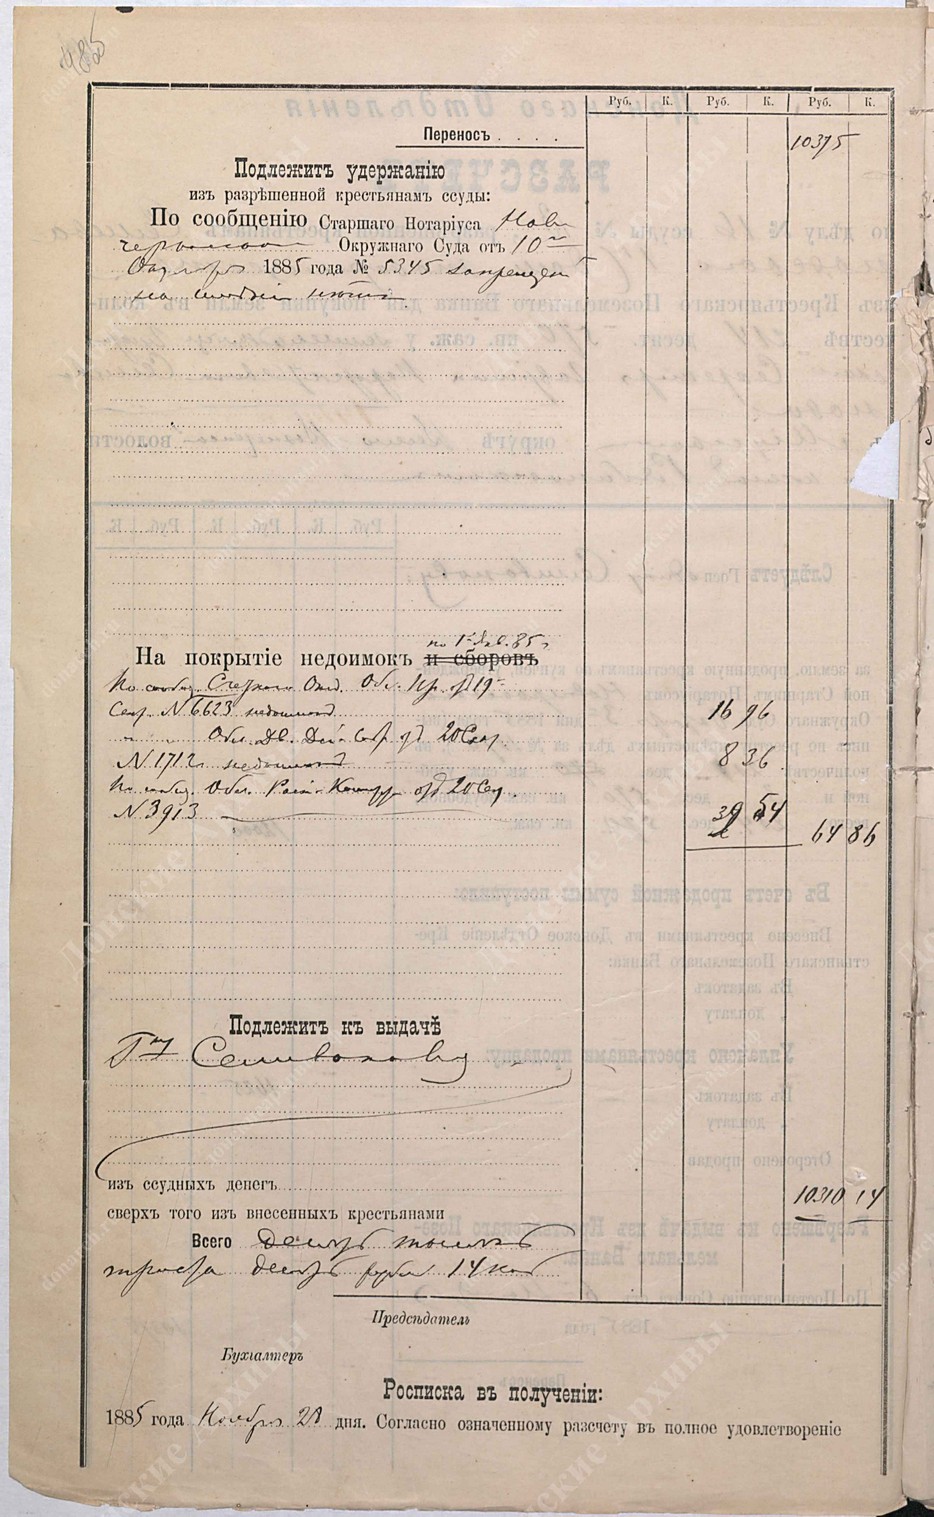 485
Руб. К. Руб. К. Руб. К.
Переносъ . . . . 10375
Подлежитъ удержанію
изъ разрѣшенной крестьянамъ ссуды:
По сообщенію Старшаго Нотаріуса Ново
черкасскаго Окружнаго Суда отъ 10
1885 года № 5345 запрещеній
на имѣніи
На покрытіе недоимокъ и сборовъ
по 1 85 г
По сообщ. Отд. Обл. Пр. отъ 19
Сент. N 6623 недоимокъ 16 96
" " Обл. Дв. отъ 20 Сен.
N 1712 недоимокъ 8 36
По сообщ. Обл. отъ 20 Сен.
N 3913 39 54 64 86
Подлежитъ къ выдачѣ
Гну Селивонову
изъ ссудныхъ денегъ 10310 14
сверхъ того изъ внесенныхъ крестьянами
Всего десять тысячъ
триста десять рублей 14 коп
Предсѣдатель
Бухгалтеръ
Росписка въ полученіи:
1885 года Ноября 28 дня. Согласно означенному разсчету въ полное удовлетвореніе